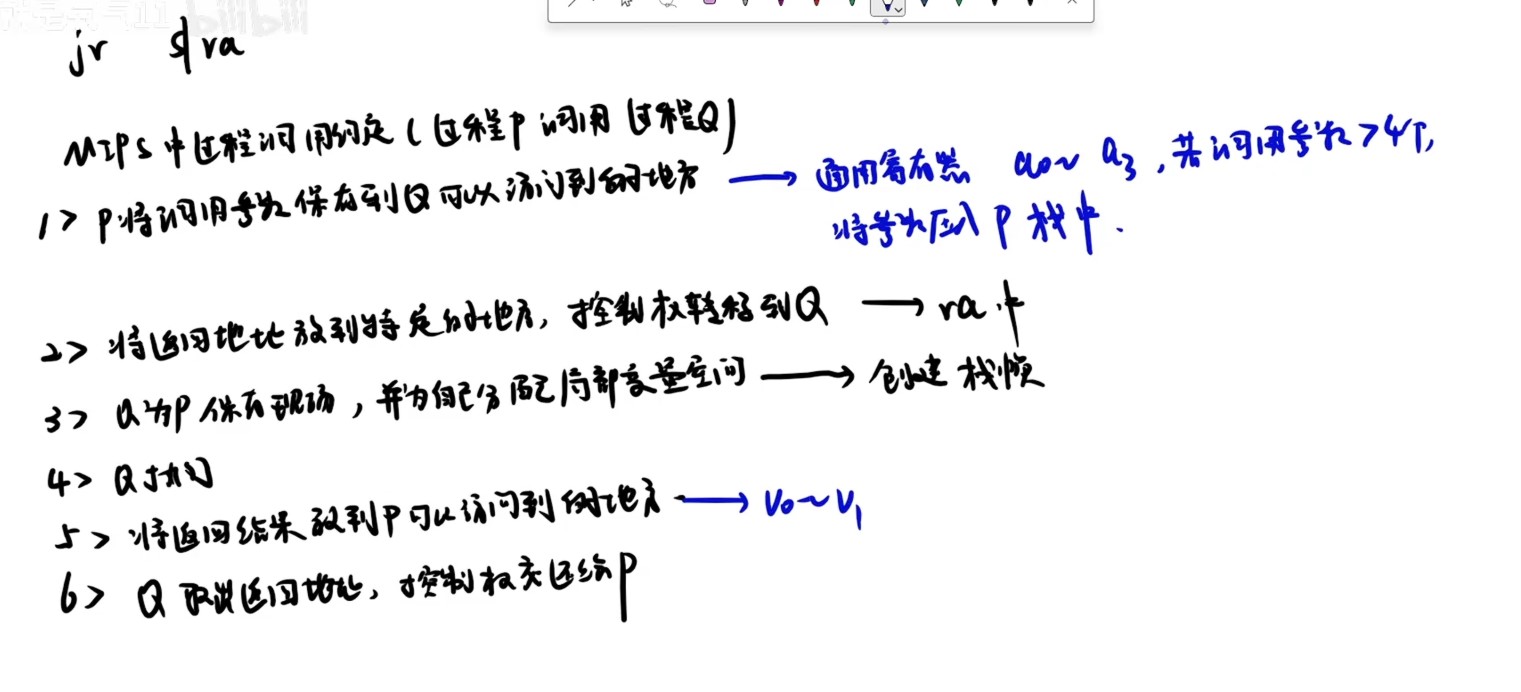 bilibili
jr $ra
MIPS中过程调用约定(过程P调用过程Q)
1> P将调用参数保存到Q可以访问到的地方 → 通用寄存器 a0~a3,若调用参数>4个,
将参数压入P栈中.
2> 将返回地址放到特定的地方,控制权转移到Q → ra中
3> Q为P保存现场,并为自己分配局部变量空间 → 创建栈帧
4> Q执行
5> 将返回结果放到P可以访问到的地方 → v0~v1
6> Q取出返回地址,控制权交还给P